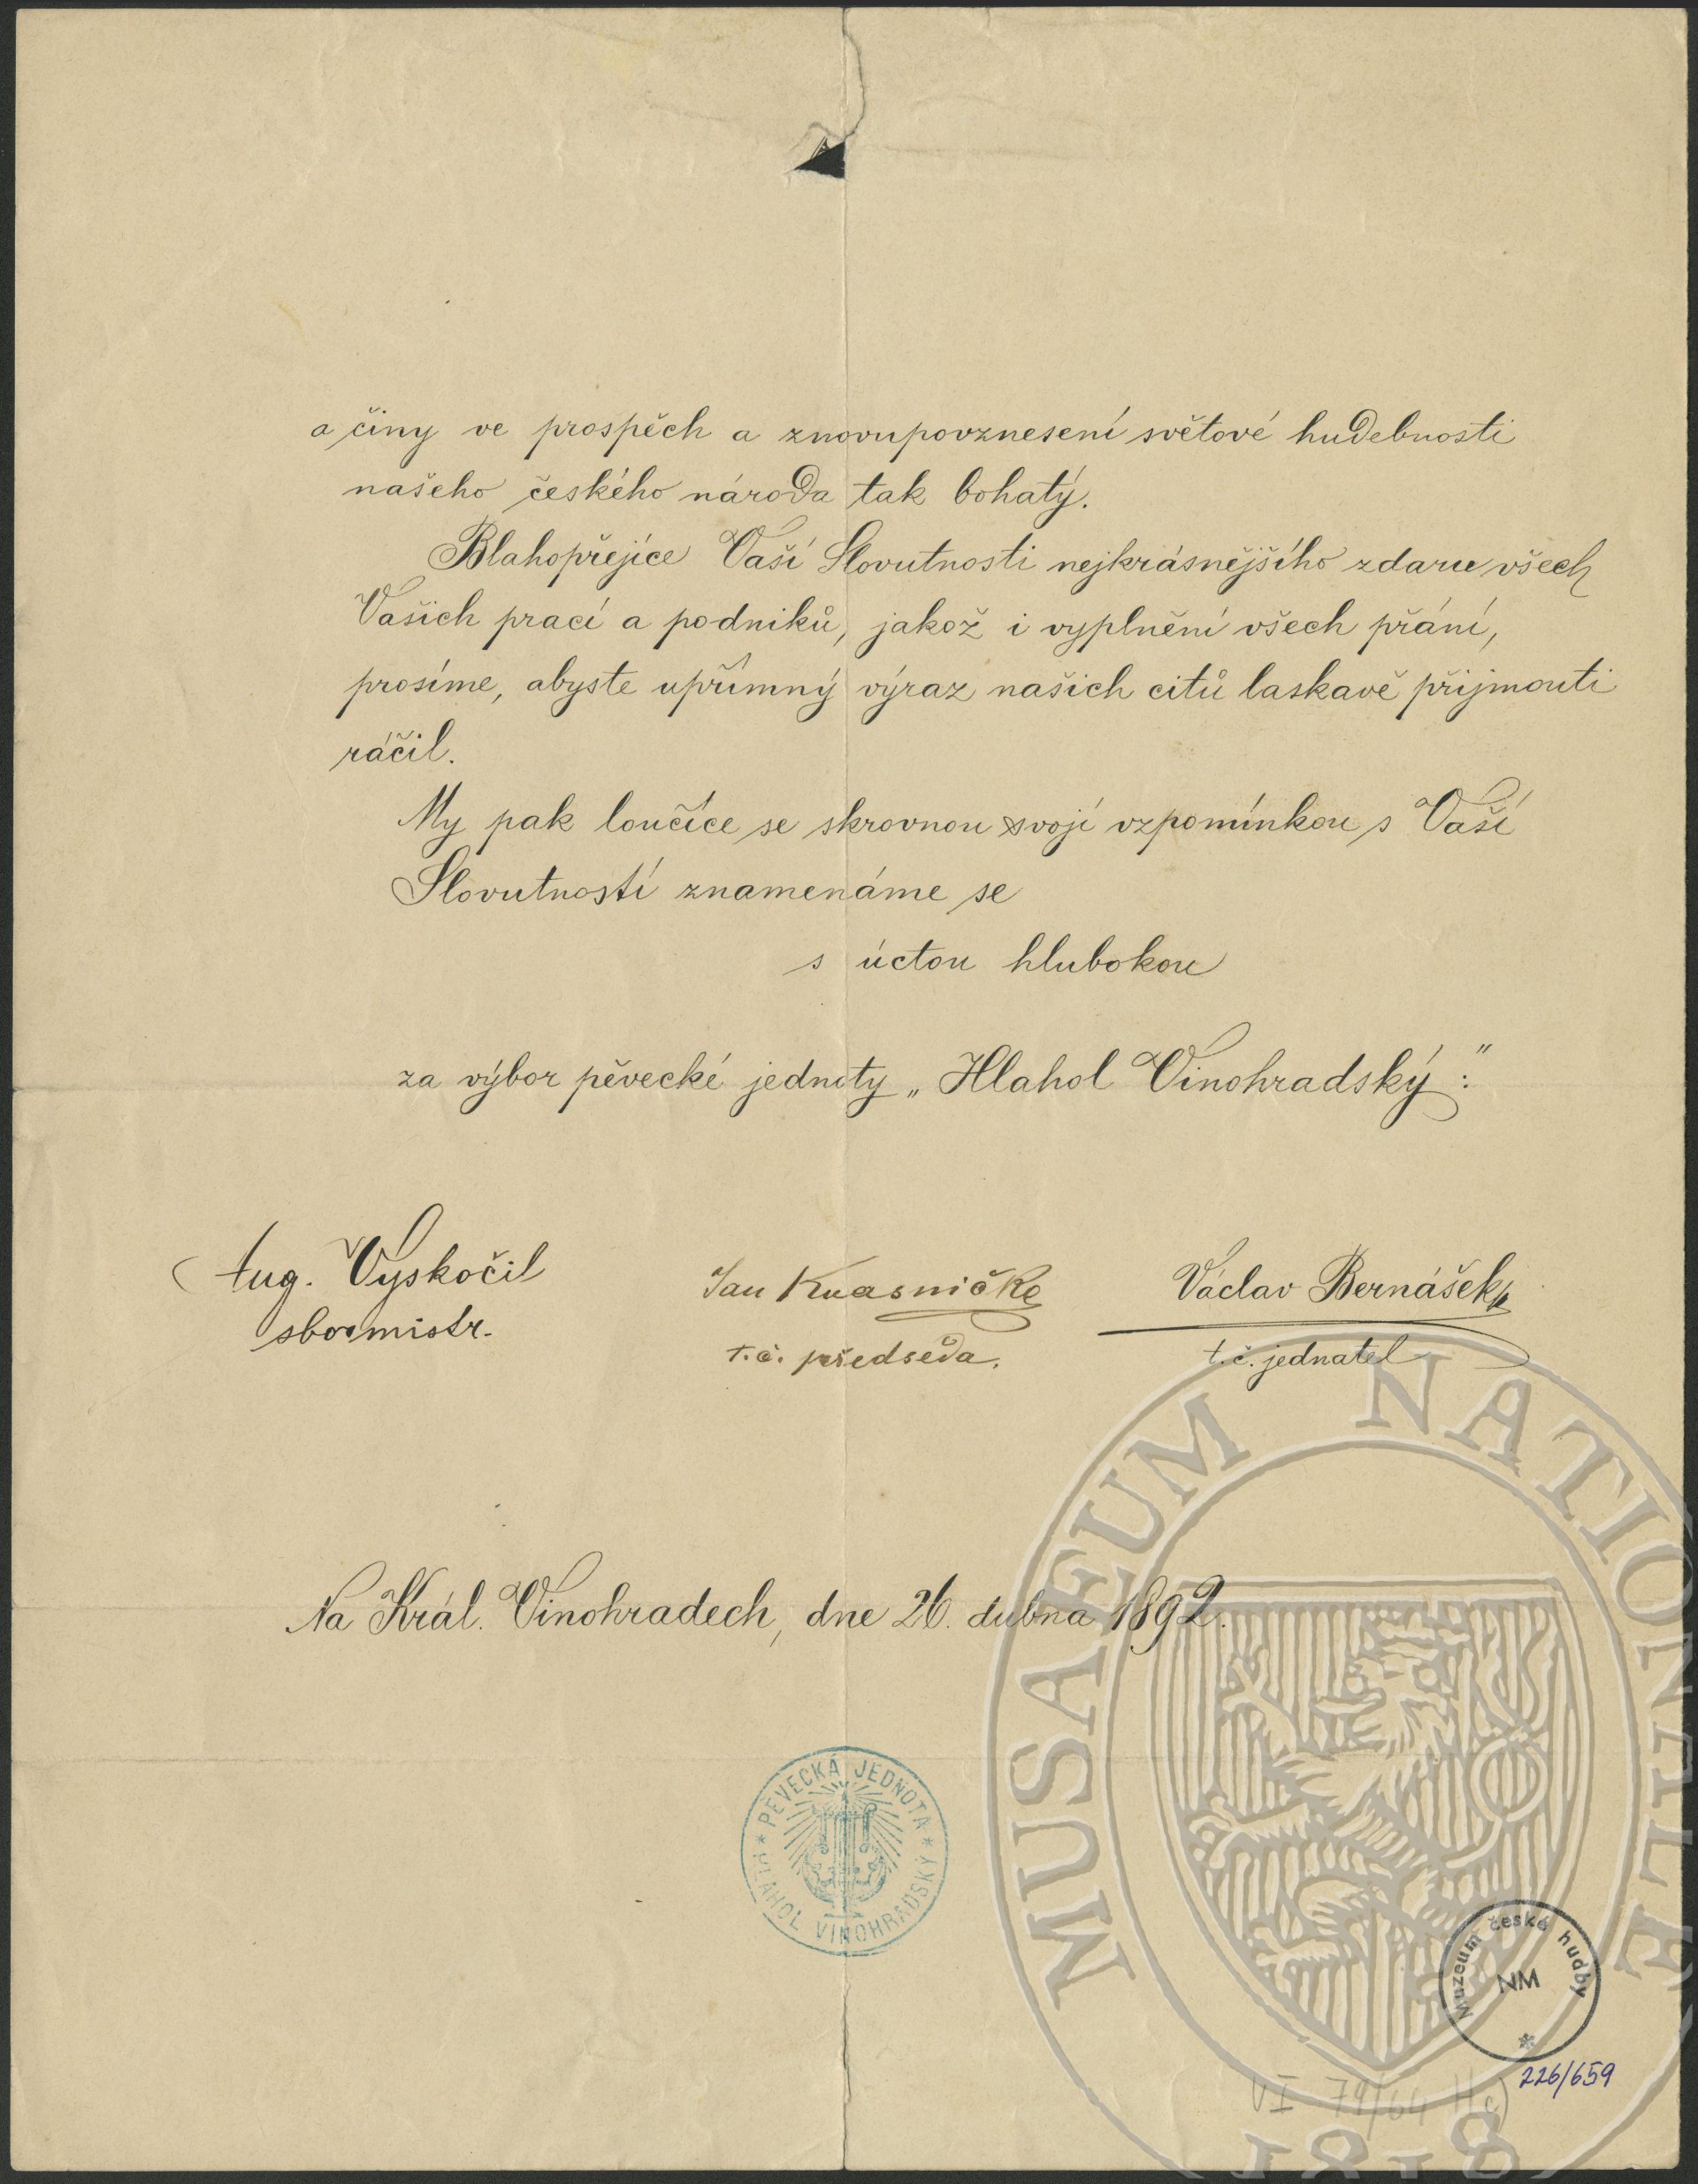 a činy ve prospěch a znovupovznesení světové hudebnosti
našeho českého národa tak bohatý.
Blahopřejíce Vaší Slovutnosti nejkrásnějšího zdaru všech
Vašich prací a podniků, jakož i vyplnění všech přání,
prosíme, abyste upřímný výraz našich citů laskavě přijmouti
ráčil.
My pak loučíce se skrovnou svojí vzpomínkou s Vaší
Slovutností znamenáme se
s úctou hlubokou
za výbor pěvecké jednoty „Hlahol Vinohradský“:
Aug. Vyskočil
sbormistr.
Jan Kvasnička
t.č. předseda.
Václav Bernášek
t.č. jednatel
Na Král. Vinohradech, dne 26. dubna 1892.
* PĚVECKÁ JEDNOTA *
HLAHOL VINOHRADSKÝ
MUSAEUM NATIONALE
1818
Muzeum české hudby
NM
*
226/659
VI 79/64